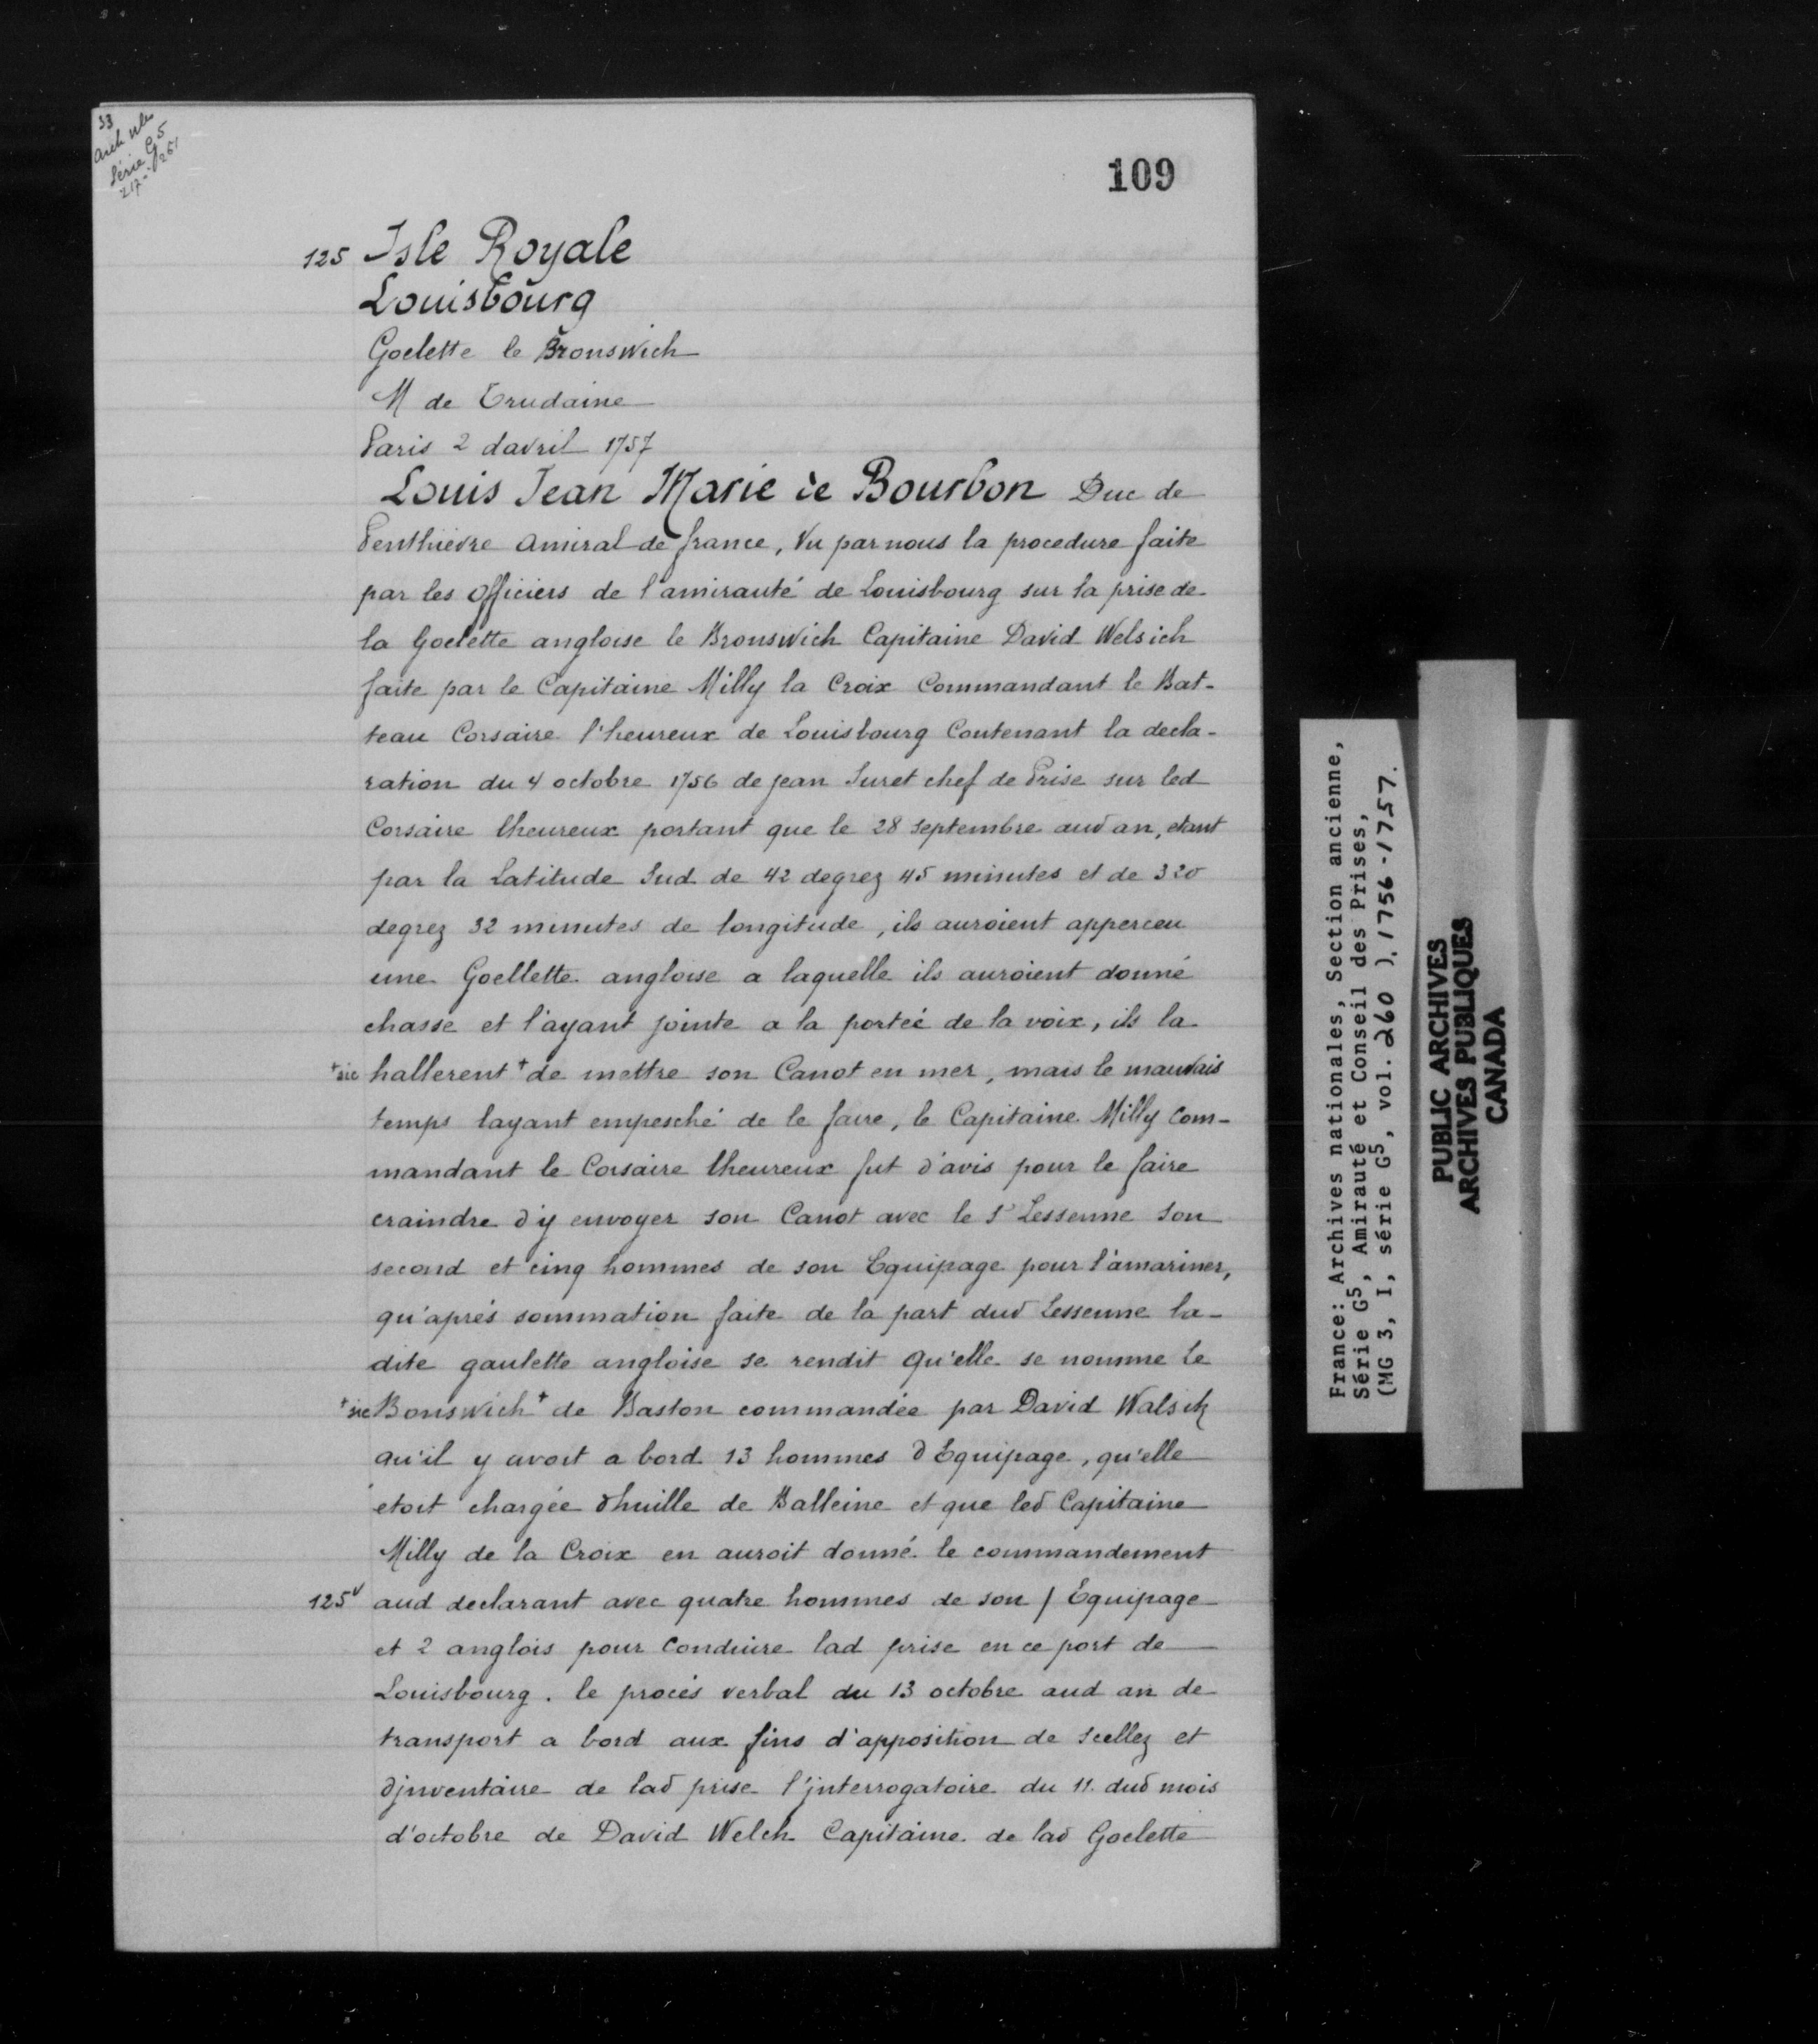 33
Arch Nles
Série G5
217 - 261
109
125 Isle Royale
Louisbourg
Goelette le Bronswich
M de Trudaine
Paris 2 davril 1757
Louis Jean Marie de Bourbon Duc de
Penthievre amiral de france, Vu par nous la procedure faite
par les officiers de l'amirauté de Louisbourg sur la prise de
la Goelette angloise le Bronswich Capitaine David Welsich
faite par le Capitaine Milly la Croix Commandant le Bat-
teau Corsaire l'heureux de Louisbourg Contenant la decla-
ration du 4 octobre 1756 de jean Suret chef de Prise sur led
Corsaire lheureux portant que le 28 septembre aud an, etant
par la Latitude Sud de 42 degrez 45 minutes et de 320
degrez 32 minutes de longitude, ils auroient apperceu
une Goellette angloise a laquelle ils auroient donné
chasse et l'ayant jointe a la porteé de la voix, ils la
+sic hallerent + de mettre son Canot en mer, mais le mauvais
temps layant empesché de le faire, le Capitaine Milly Com-
mandant le Corsaire lheureux fut d'avis pour le faire
craindre d'y envoyer son Canot avec le Sr Lessenne son
second et cinq hommes de son Equipage pour l'amariner,
qu'aprés sommation faite de la part dud Lessenne la-
dite gaulette angloise se rendit qu'elle se nomme le
+sic Bonswich + de Baston commandée par David Walsch
qu'il y avoit a bord 13 hommes d Equipage, qu'elle
etoit chargée dhuille de Balleine et que led Capitaine
Milly de la Croix en auroit donné le commandement
125v aud declarant avec quatre hommes de son / Equipage
et 2 anglois pour Conduire lad prise en ce port de
Louisbourg. le procés verbal du 13 octobre aud an de
transport a bord aux fins d'apposition de Scellez et
djnventaire de lad prise l'jnterrogatoire du 11. dud mois
d'octobre de David Welch Capitaine de lad Goelette
France: Archives nationales, Section ancienne,
Série G5, Amirauté et Conseil des Prises,
(MG 3, I, série G5, vol. 260 ), 1756-1757.
PUBLIC ARCHIVES
ARCHIVES PUBLIQUES
CANADA